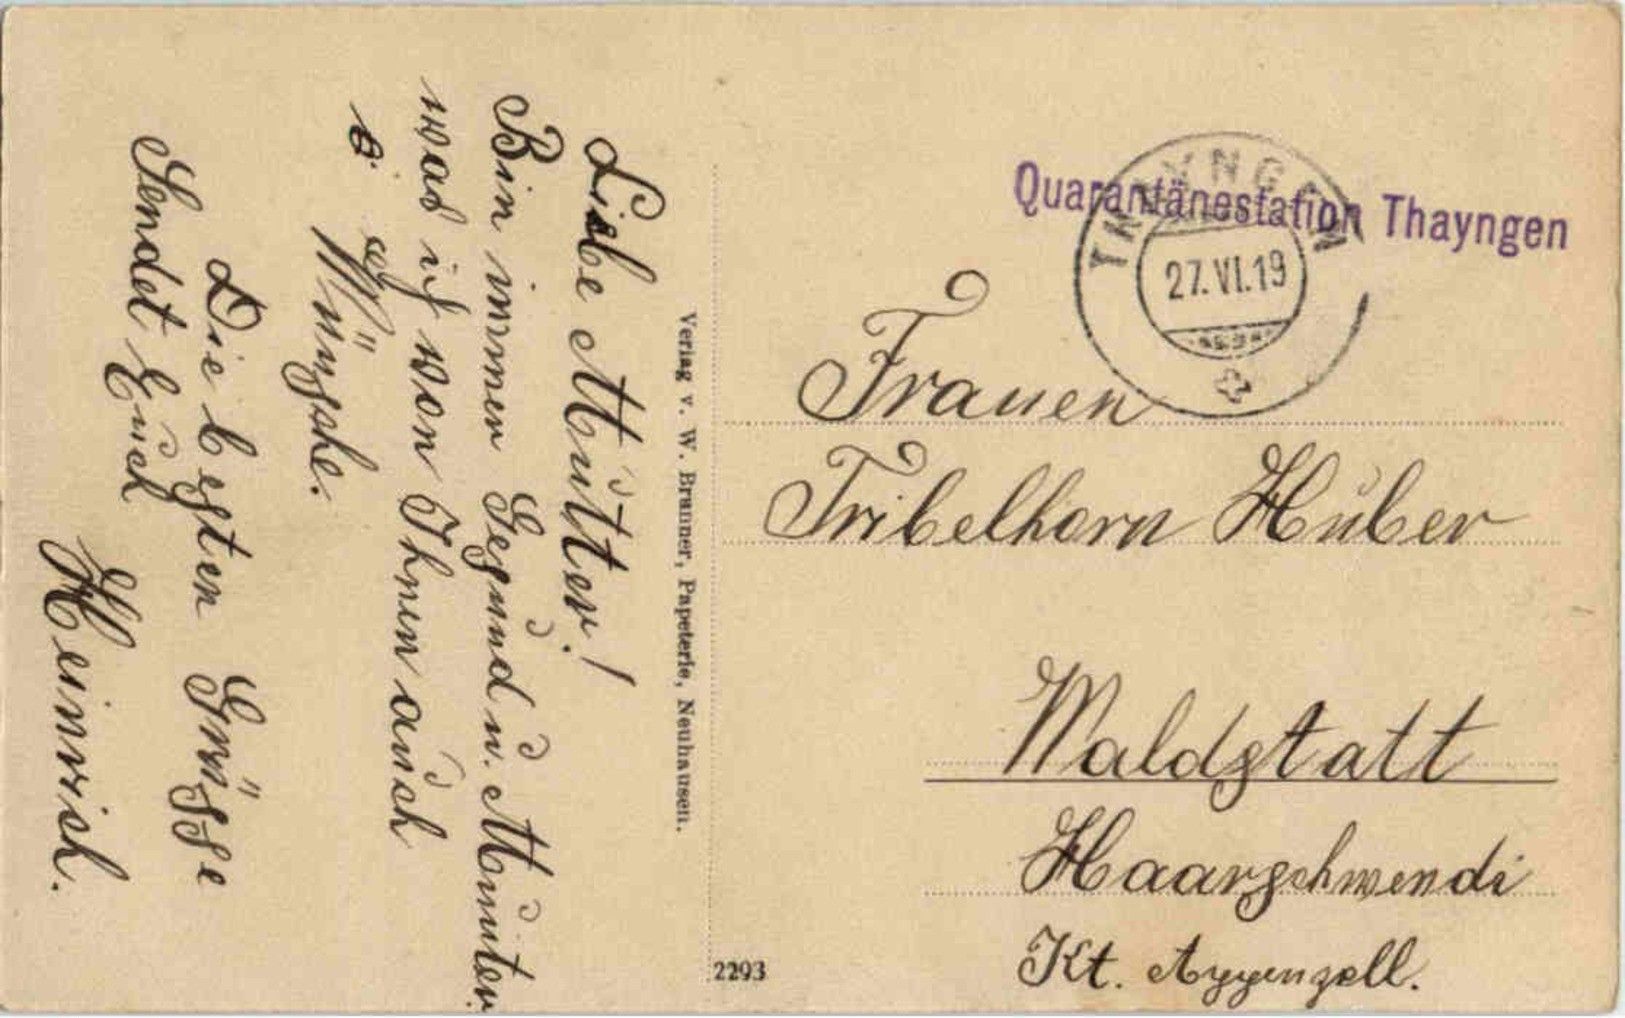 Liebe Mutter!
Bin immer Gesund u. Munter.
was ich von Ihnen auch
Wünsche.
Die besten Grüsse
Sendet Euch
Heinrich.
Verlag v. W. Brunner, Papeterie, Neuhausen.
2293
Quarantänestation Thayngen
THAYNGEN
27.VI.19
Frauen
Tribelhorn Huber
Waldstatt
Haarschwendi
Kt. Appenzell.